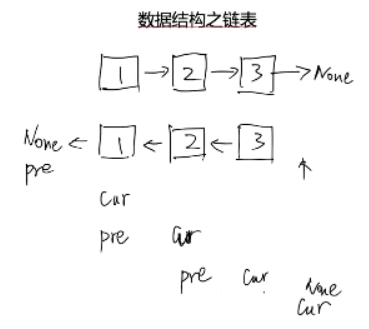 数据结构之链表
1 → 2 → 3 → None
None ← 1 ← 2 ← 3
pre ↑
Cur
pre Cur
pre Cur None
Cur